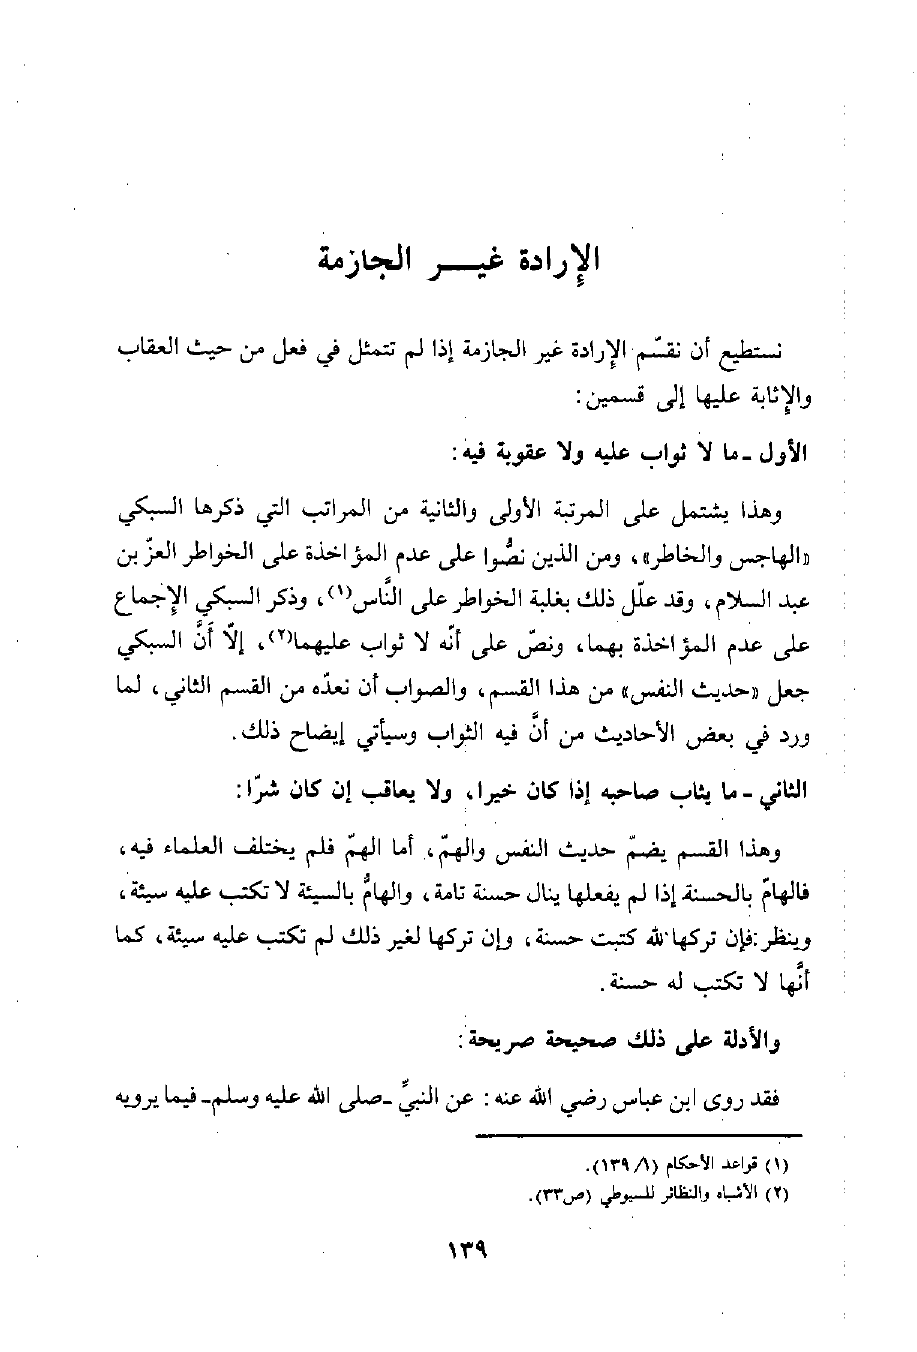 الإرادة غيـــر الجازمة
نستطيع أن نقسّم الإرادة غير الجازمة إذا لم تتمثل في فعل من حيث العقاب
والإثابة عليها إلى قسمين:
الأول ـ ما لا ثواب عليه ولا عقوبة فيه:
وهذا يشتمل على المرتبة الأولى والثانية من المراتب التي ذكرها السبكي
«الهاجس والخاطر»، ومن الذين نصُّوا على عدم المؤاخذة على الخواطر العزّ بن
عبد السلام، وقد علّل ذلك بغلبة الخواطر على النَّاس(١)، وذكر السبكي الإجماع
على عدم المؤاخذة بهما، ونصّ على أنّه لا ثواب عليهما(٢)، إلّا أَنَّ السبكي
جعل «حديث النفس» من هذا القسم، والصواب أن نعدّه من القسم الثاني، لما
ورد في بعض الأحاديث من أنَّ فيه الثواب وسيأتي إيضاح ذلك.
الثاني ـ ما يثاب صاحبه إذا كان خيرا، ولا يعاقب إن كان شرّا:
وهذا القسم يضمّ حديث النفس والهمّ، أما الهمّ فلم يختلف العلماء فيه،
فالهامّ بالحسنة إذا لم يفعلها ينال حسنة تامة، والهامُّ بالسيئة لا تكتب عليه سيئة،
وينظر: فإن تركها لله كتبت حسنة، وإن تركها لغير ذلك لم تكتب عليه سيئة، كما
أنَّها لا تكتب له حسنة.
والأدلة على ذلك صحيحة صريحة:
فقد روى ابن عباس رضي الله عنه: عن النبيِّ ـ صلى الله عليه وسلم ـ فيما يرويه
(١) قواعد الأحكام (١/ ١٣٩).
(٢) الأشباه والنظائر للسيوطي (ص٣٣).
١٣٩